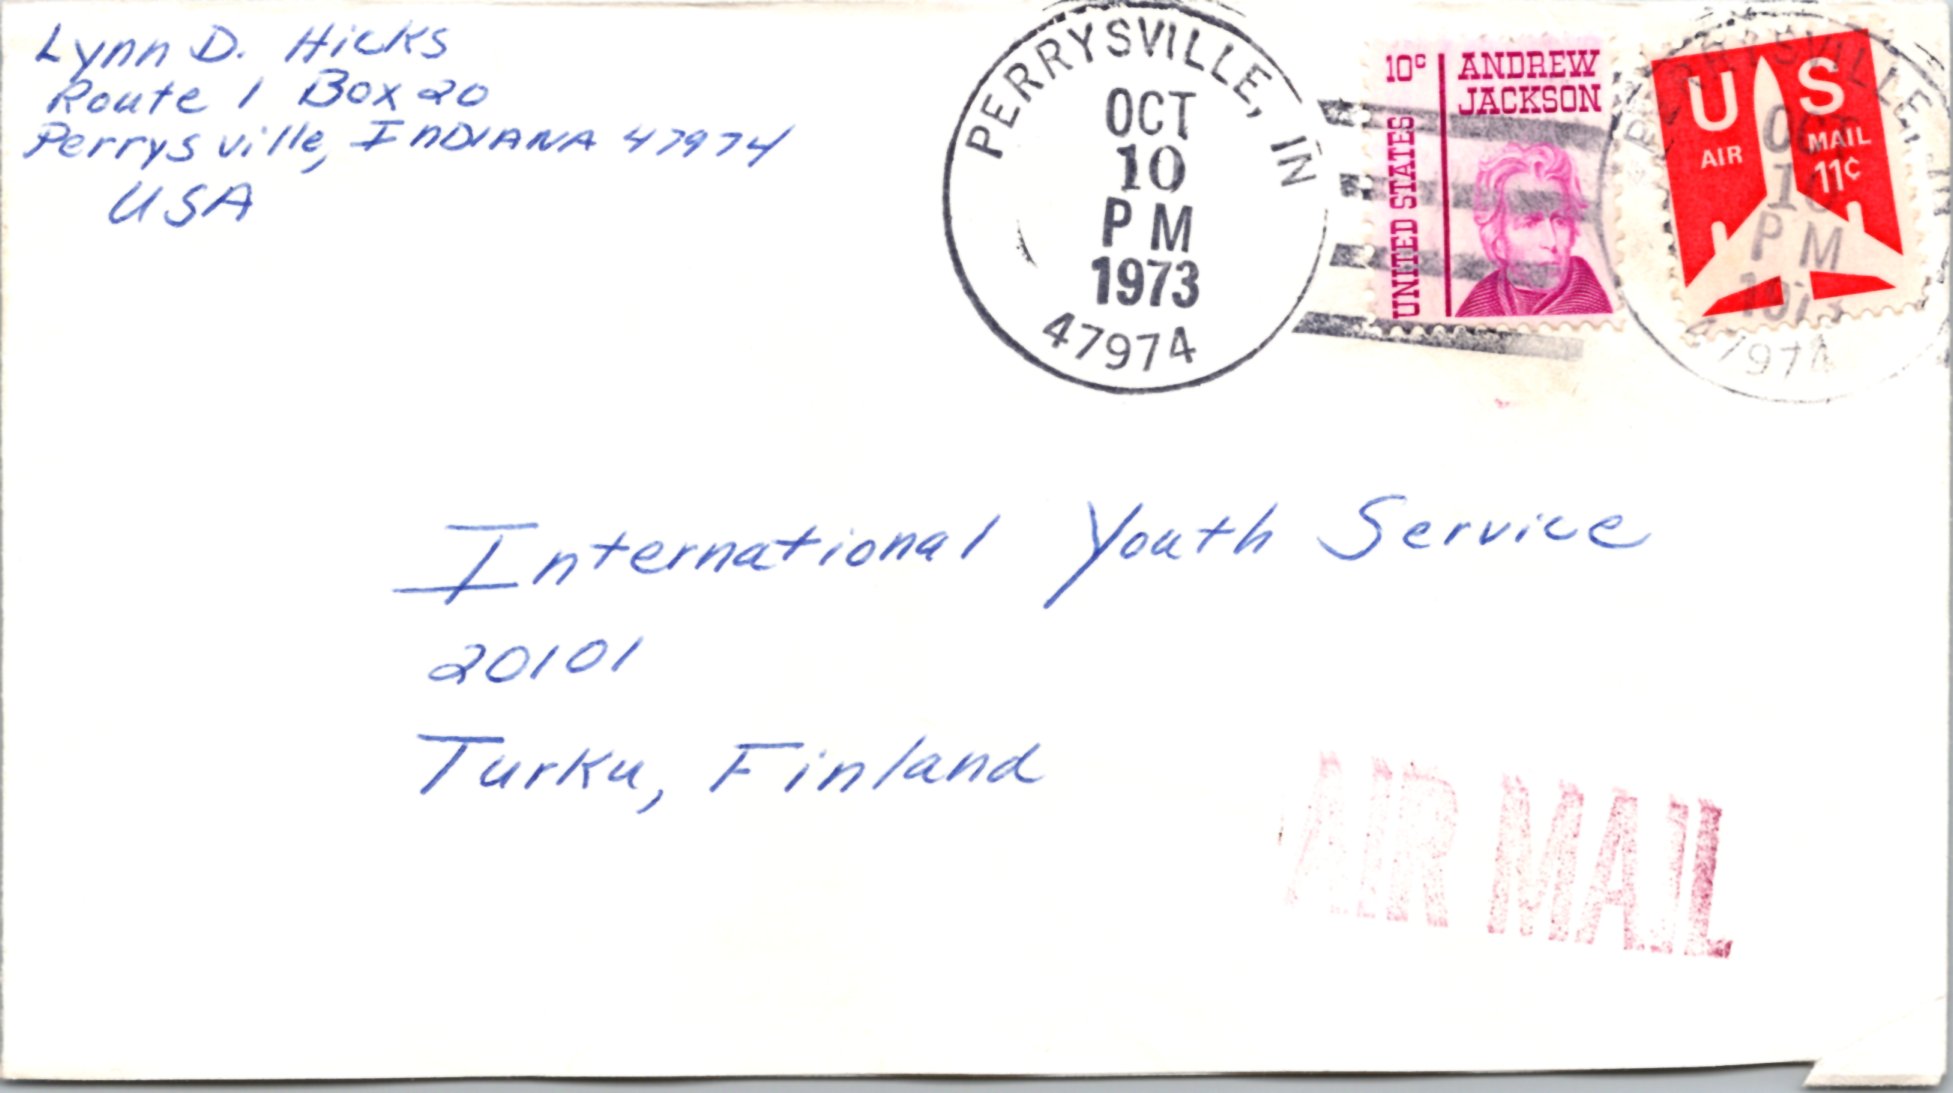 Lynn D. Hicks
Route 1 Box 20
Perrysville, INDIANA 47974
USA
PERRYSVILLE, IN
OCT
10
PM
1973
47974
10c
ANDREW
JACKSON
UNITED STATES
US
AIR MAIL
11¢
PERRYSVILLE, IN
OCT
10
PM
1973
47974
International Youth Service
20101
Turku, Finland
AIR MAIL